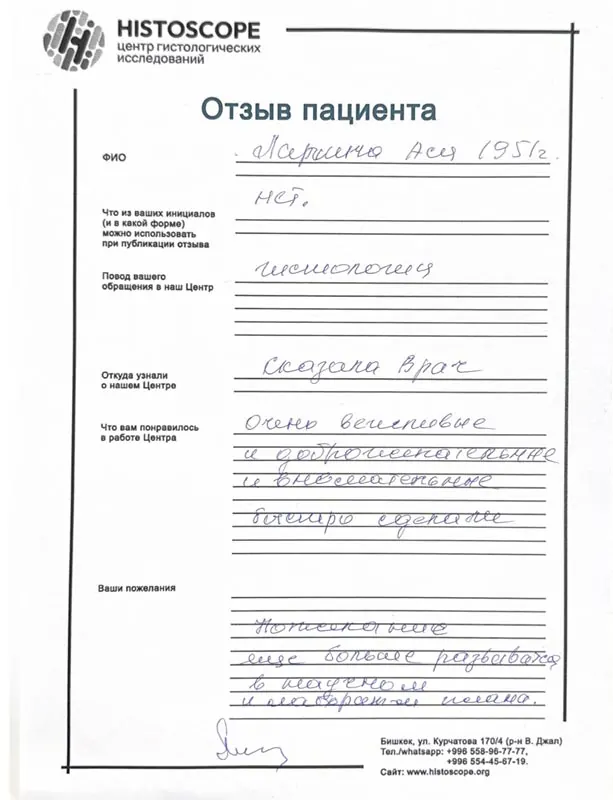 HISTOSCOPE
центр гистологических
исследований
Отзыв пациента
ФИО
Ася 1951г.
Что из ваших инициалов
(и в какой форме)
можно использовать
при публикации отзыва
нет.
Повод вашего
обращения в наш Центр
гистология
Откуда узнали
о нашем Центре
Сказала Врач
Что вам понравилось
в работе Центра
Очень вежливые
и доброжелательные
и внимательные
быстро сделали
Ваши пожелания
еще больше развиватся
в научном
и плана.
Бишкек, ул. Курчатова 170/4 (р-н В. Джал)
Тел./whatsapp: +996 558-96-77-77,
+996 554-45-67-19.
Сайт: www.histoscope.org